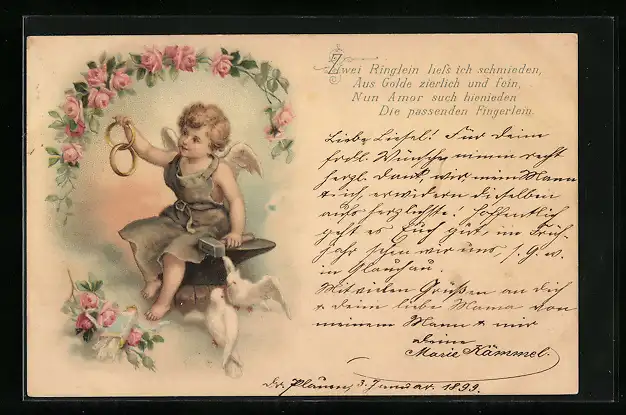 Zwei Ringlein ließ ich schmieden,
Aus Golde zierlich und fein,
Nun Amor such hienieden
Die passenden Fingerlein.
Liebe Liesel! Für Deine
frdl. Wünsche nimm recht
herzl. Dank wir, mein Mann
+ ich, erwidern dieselben
aufs herzlichste. Hoffentlich
geht es Euch gut, im Früh-
jahr sehen wir uns, s. G. w.
in Glauchau.
Mit vielen Grüßen an dich
+ deine liebe Mama von
meinem Mann + mir
deine
Marie Kämmel.
Dr. Plauen, 3. Januar 1899.